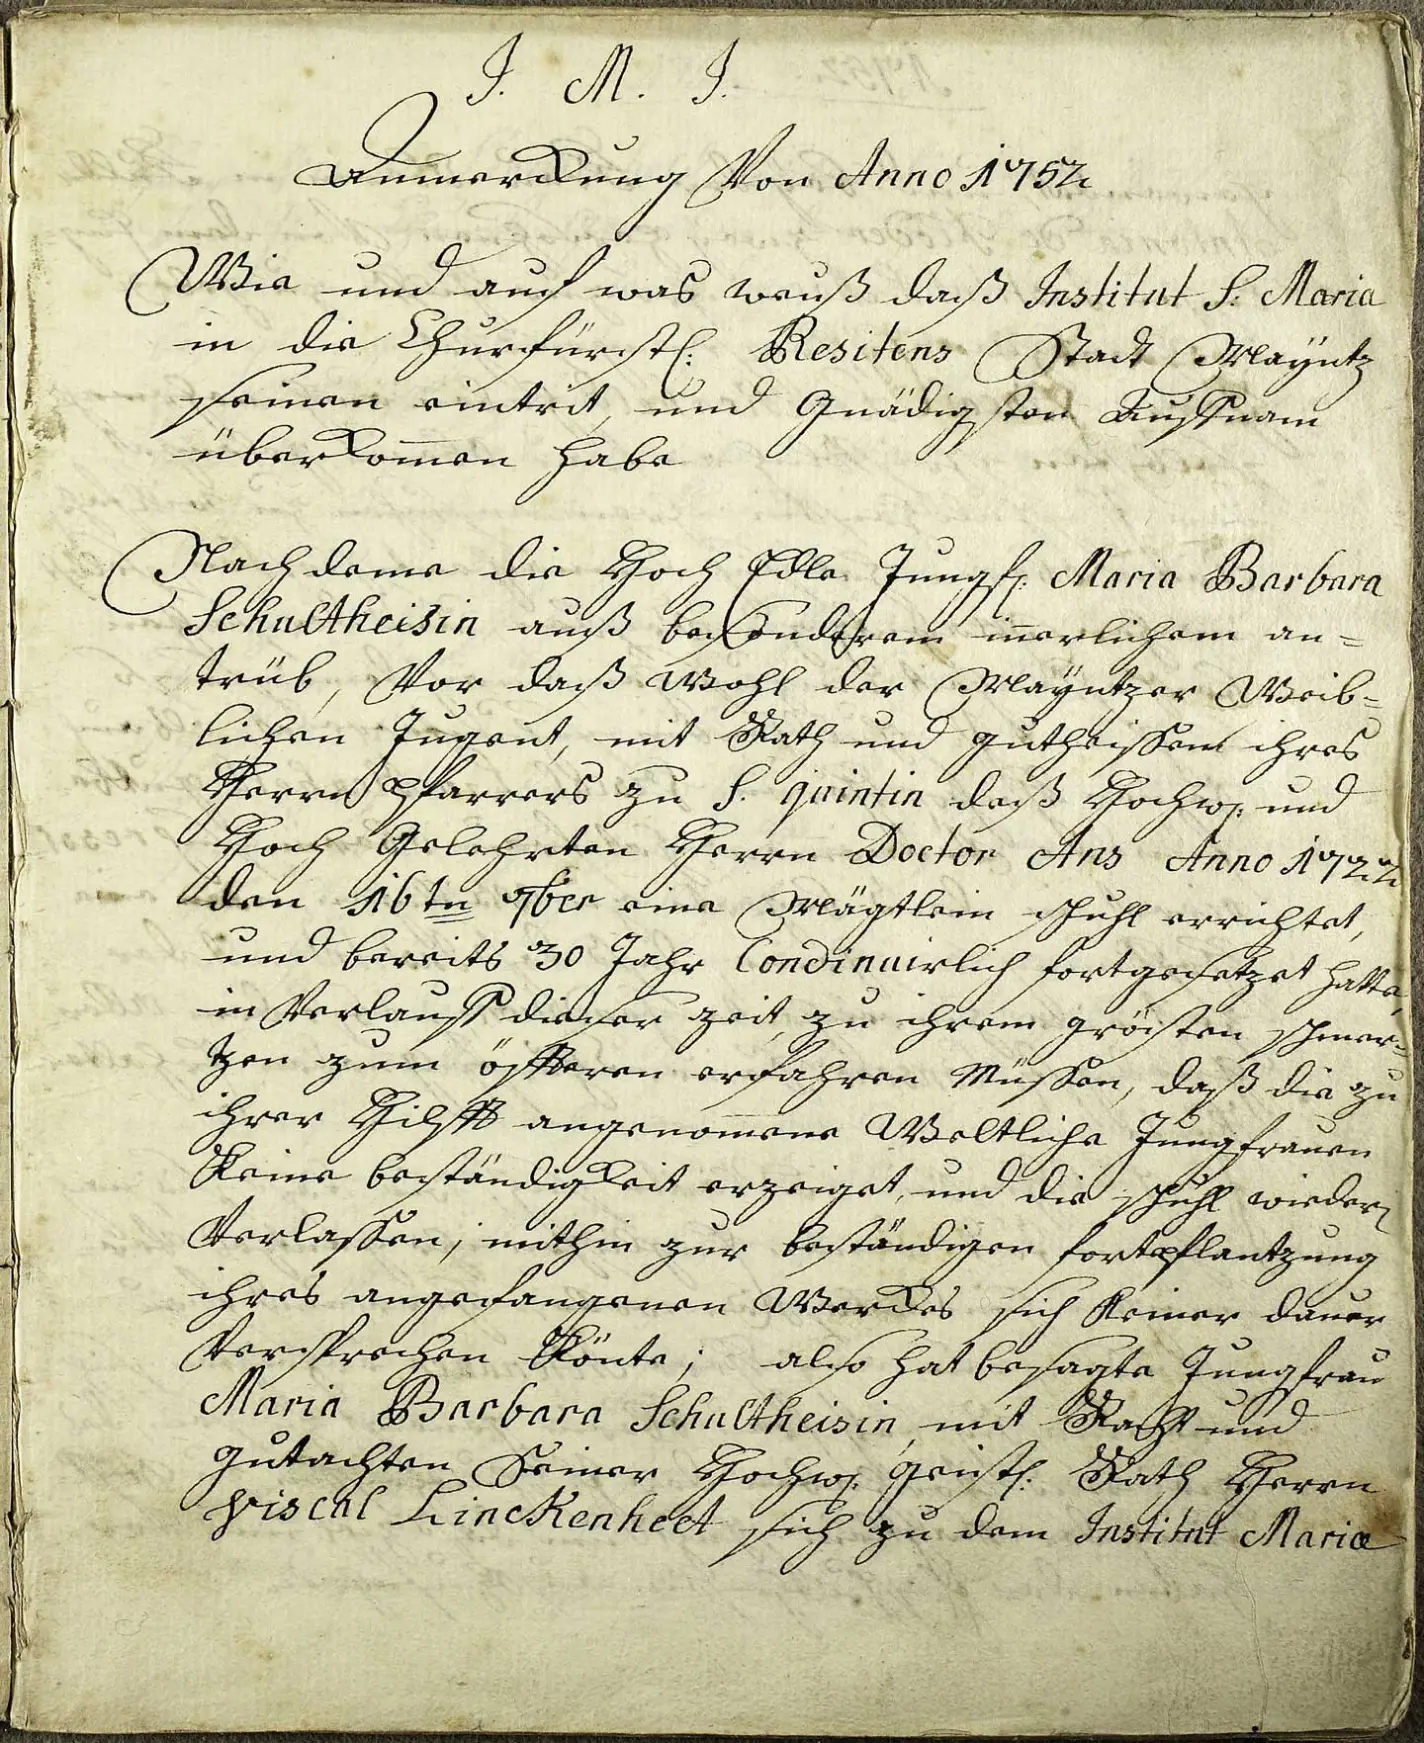 J. M. J.
Anmerckung Von Anno 1752
Wie und auch was weiß daß Institut S: Maria
in die Churfürstl: Resitens Stadt Mayntz
seinen eintrit, und Gnädigsten Auffnam
überkomen habe
Nach deme die Hoch Edle Jungf: Maria Barbara
Schultheisin auß besonderem inerlichem an=
trüb, Vor daß Wohl der Mayntzer Weib=
lichen Jugent, mit Rath und gutheissen ihres
Herrn Pfarrers zu S. quintin deß Hochw: und
Hoch Gelehrten Herrn Doctor Ans Anno 1722
den 16tn 7ber eine Mägtlein schuhl errichtet,
und bereits 30 Jahr Condinuirlich fortgesetzet hatte,
in Verlauff dieser zeit, zu ihrem grösten schmer=
tzen zum öffteren erfahren Müssen, daß die zu
ihrer Hilff angenomene Weltliche Jungfrauen
Keine beständigkeit erzeiget, und die schuhl wieder
Verlassen, mithin zur beständigen fortpflantzung
ihres angefangenen Werckes sich Keiner dauer
Versprechen Könte; also hat besagte Jungfrau
Maria Barbara Schultheisin, mit Rath und
gutachten Seiner Hochw: Geistl: Rath Herrn
Viscal Linckenhelt sich zu dem Institut Mariæ